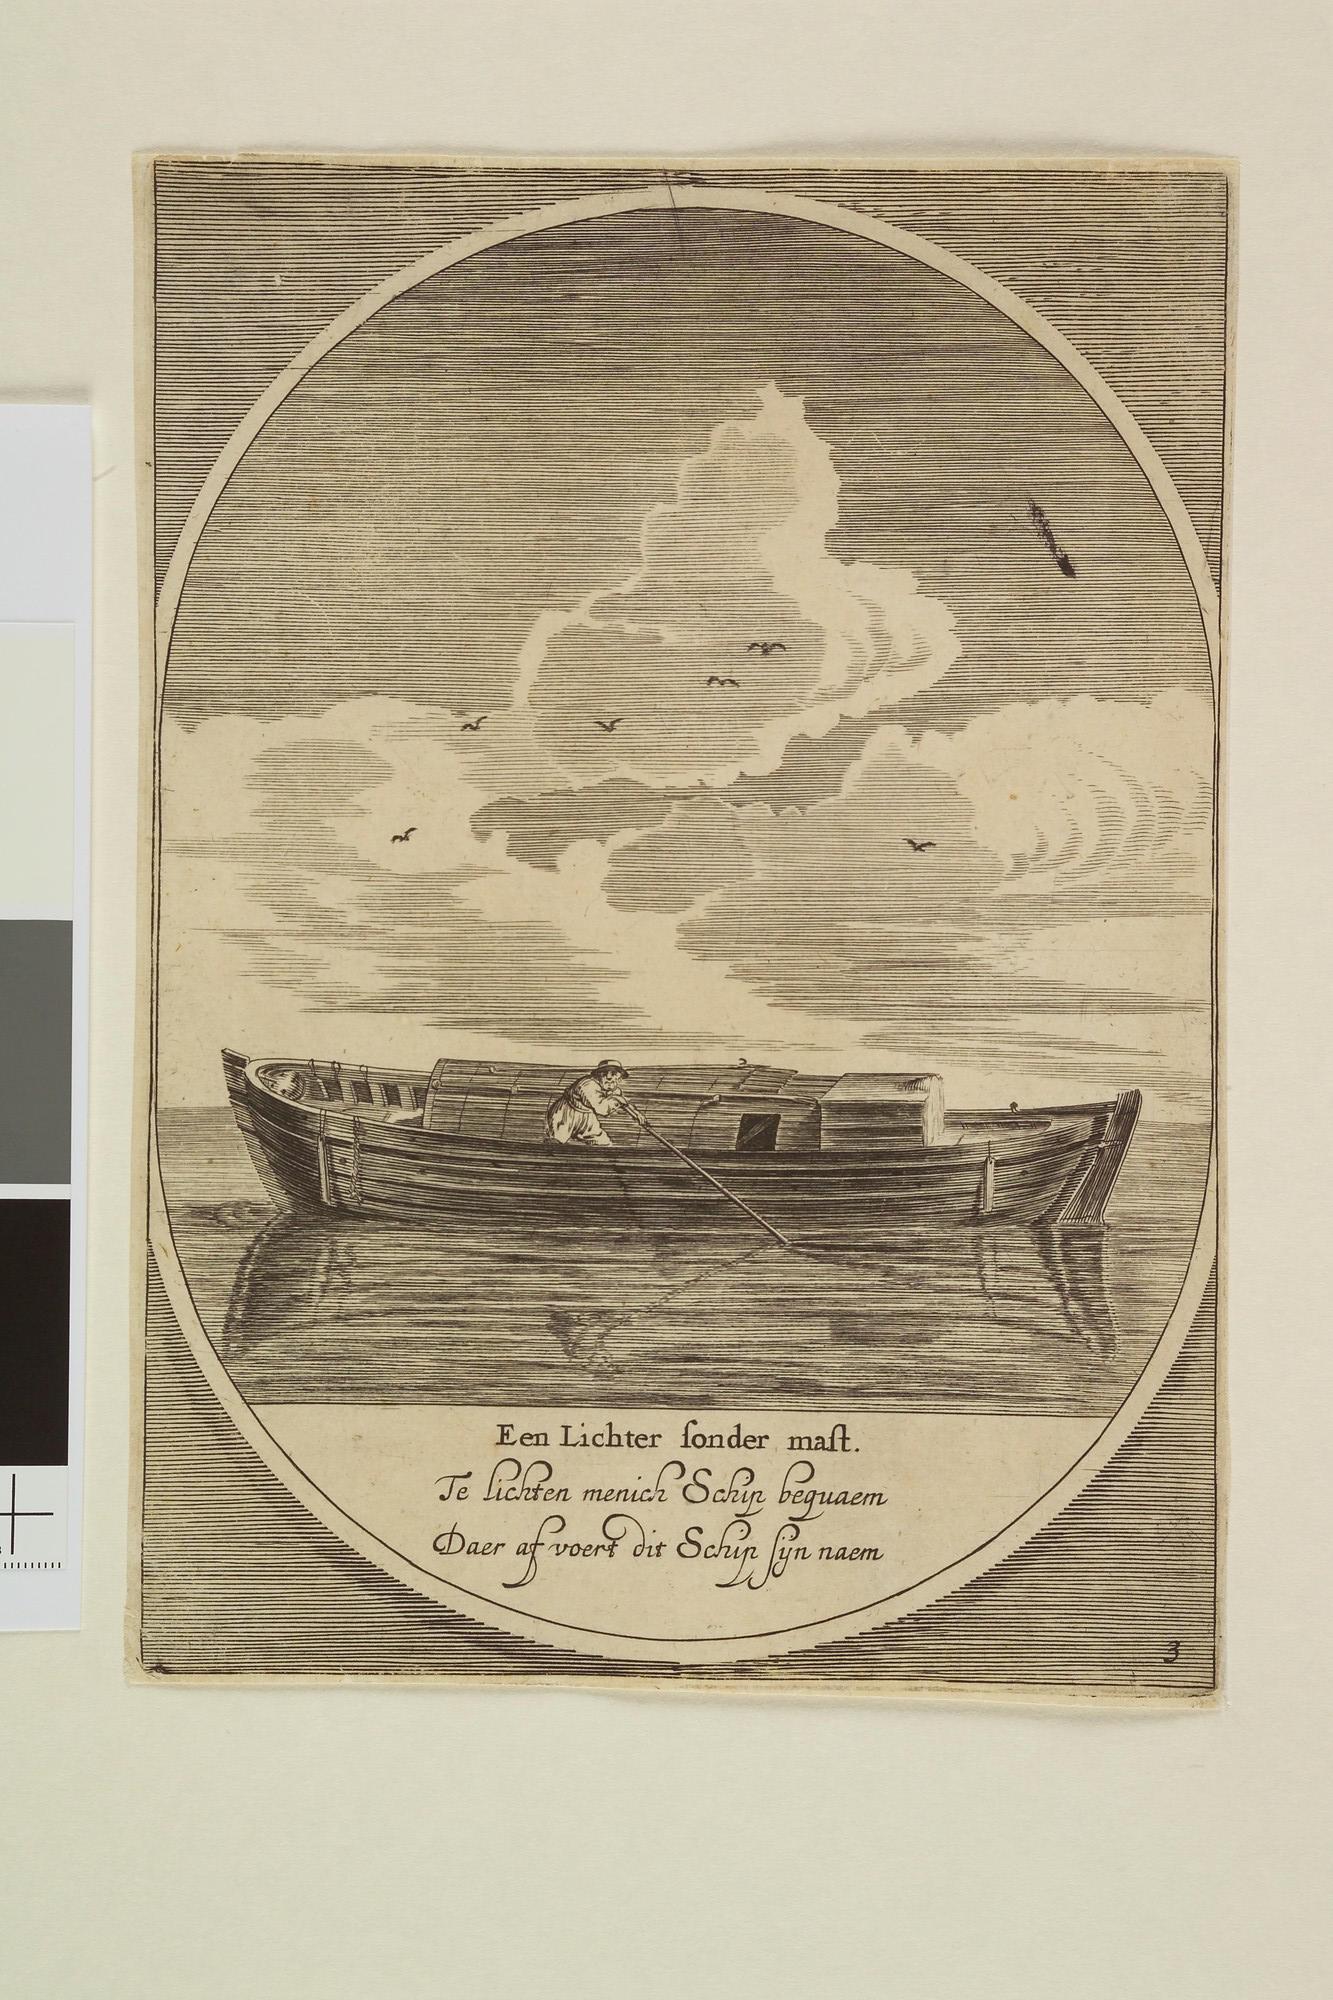 Een Lichter ſonder maſt.
Te lichten menich Schip bequaem
Daer af voert dit Schip ſijn naem
3